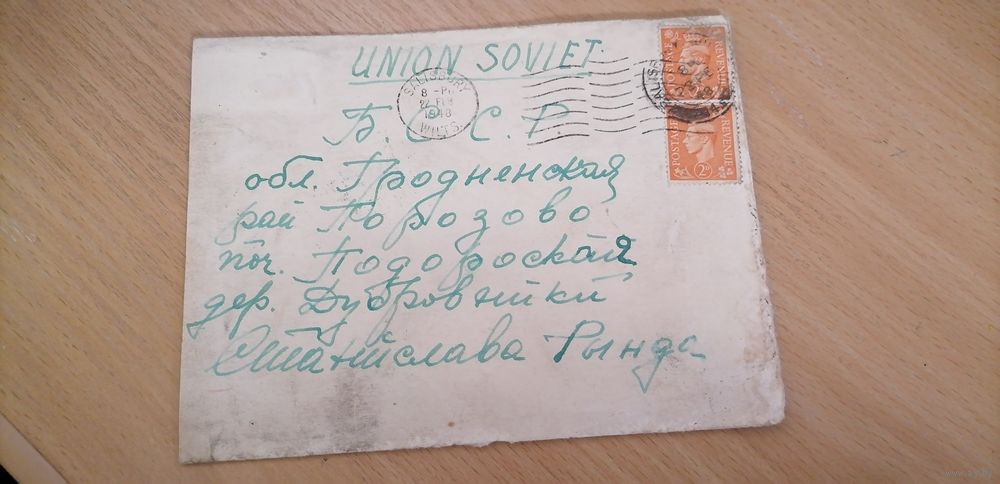 UNION SOVIET.
SALISBURY
8 - PM
FEB
1948
WILTS.
POSTAGE REVENUE
POSTAGE REVENUE
2D
Б. С. С. Р.
обл. Гродненская
рай Порозово
поч. Подороская
дер. Дубровники
Станислава Рында